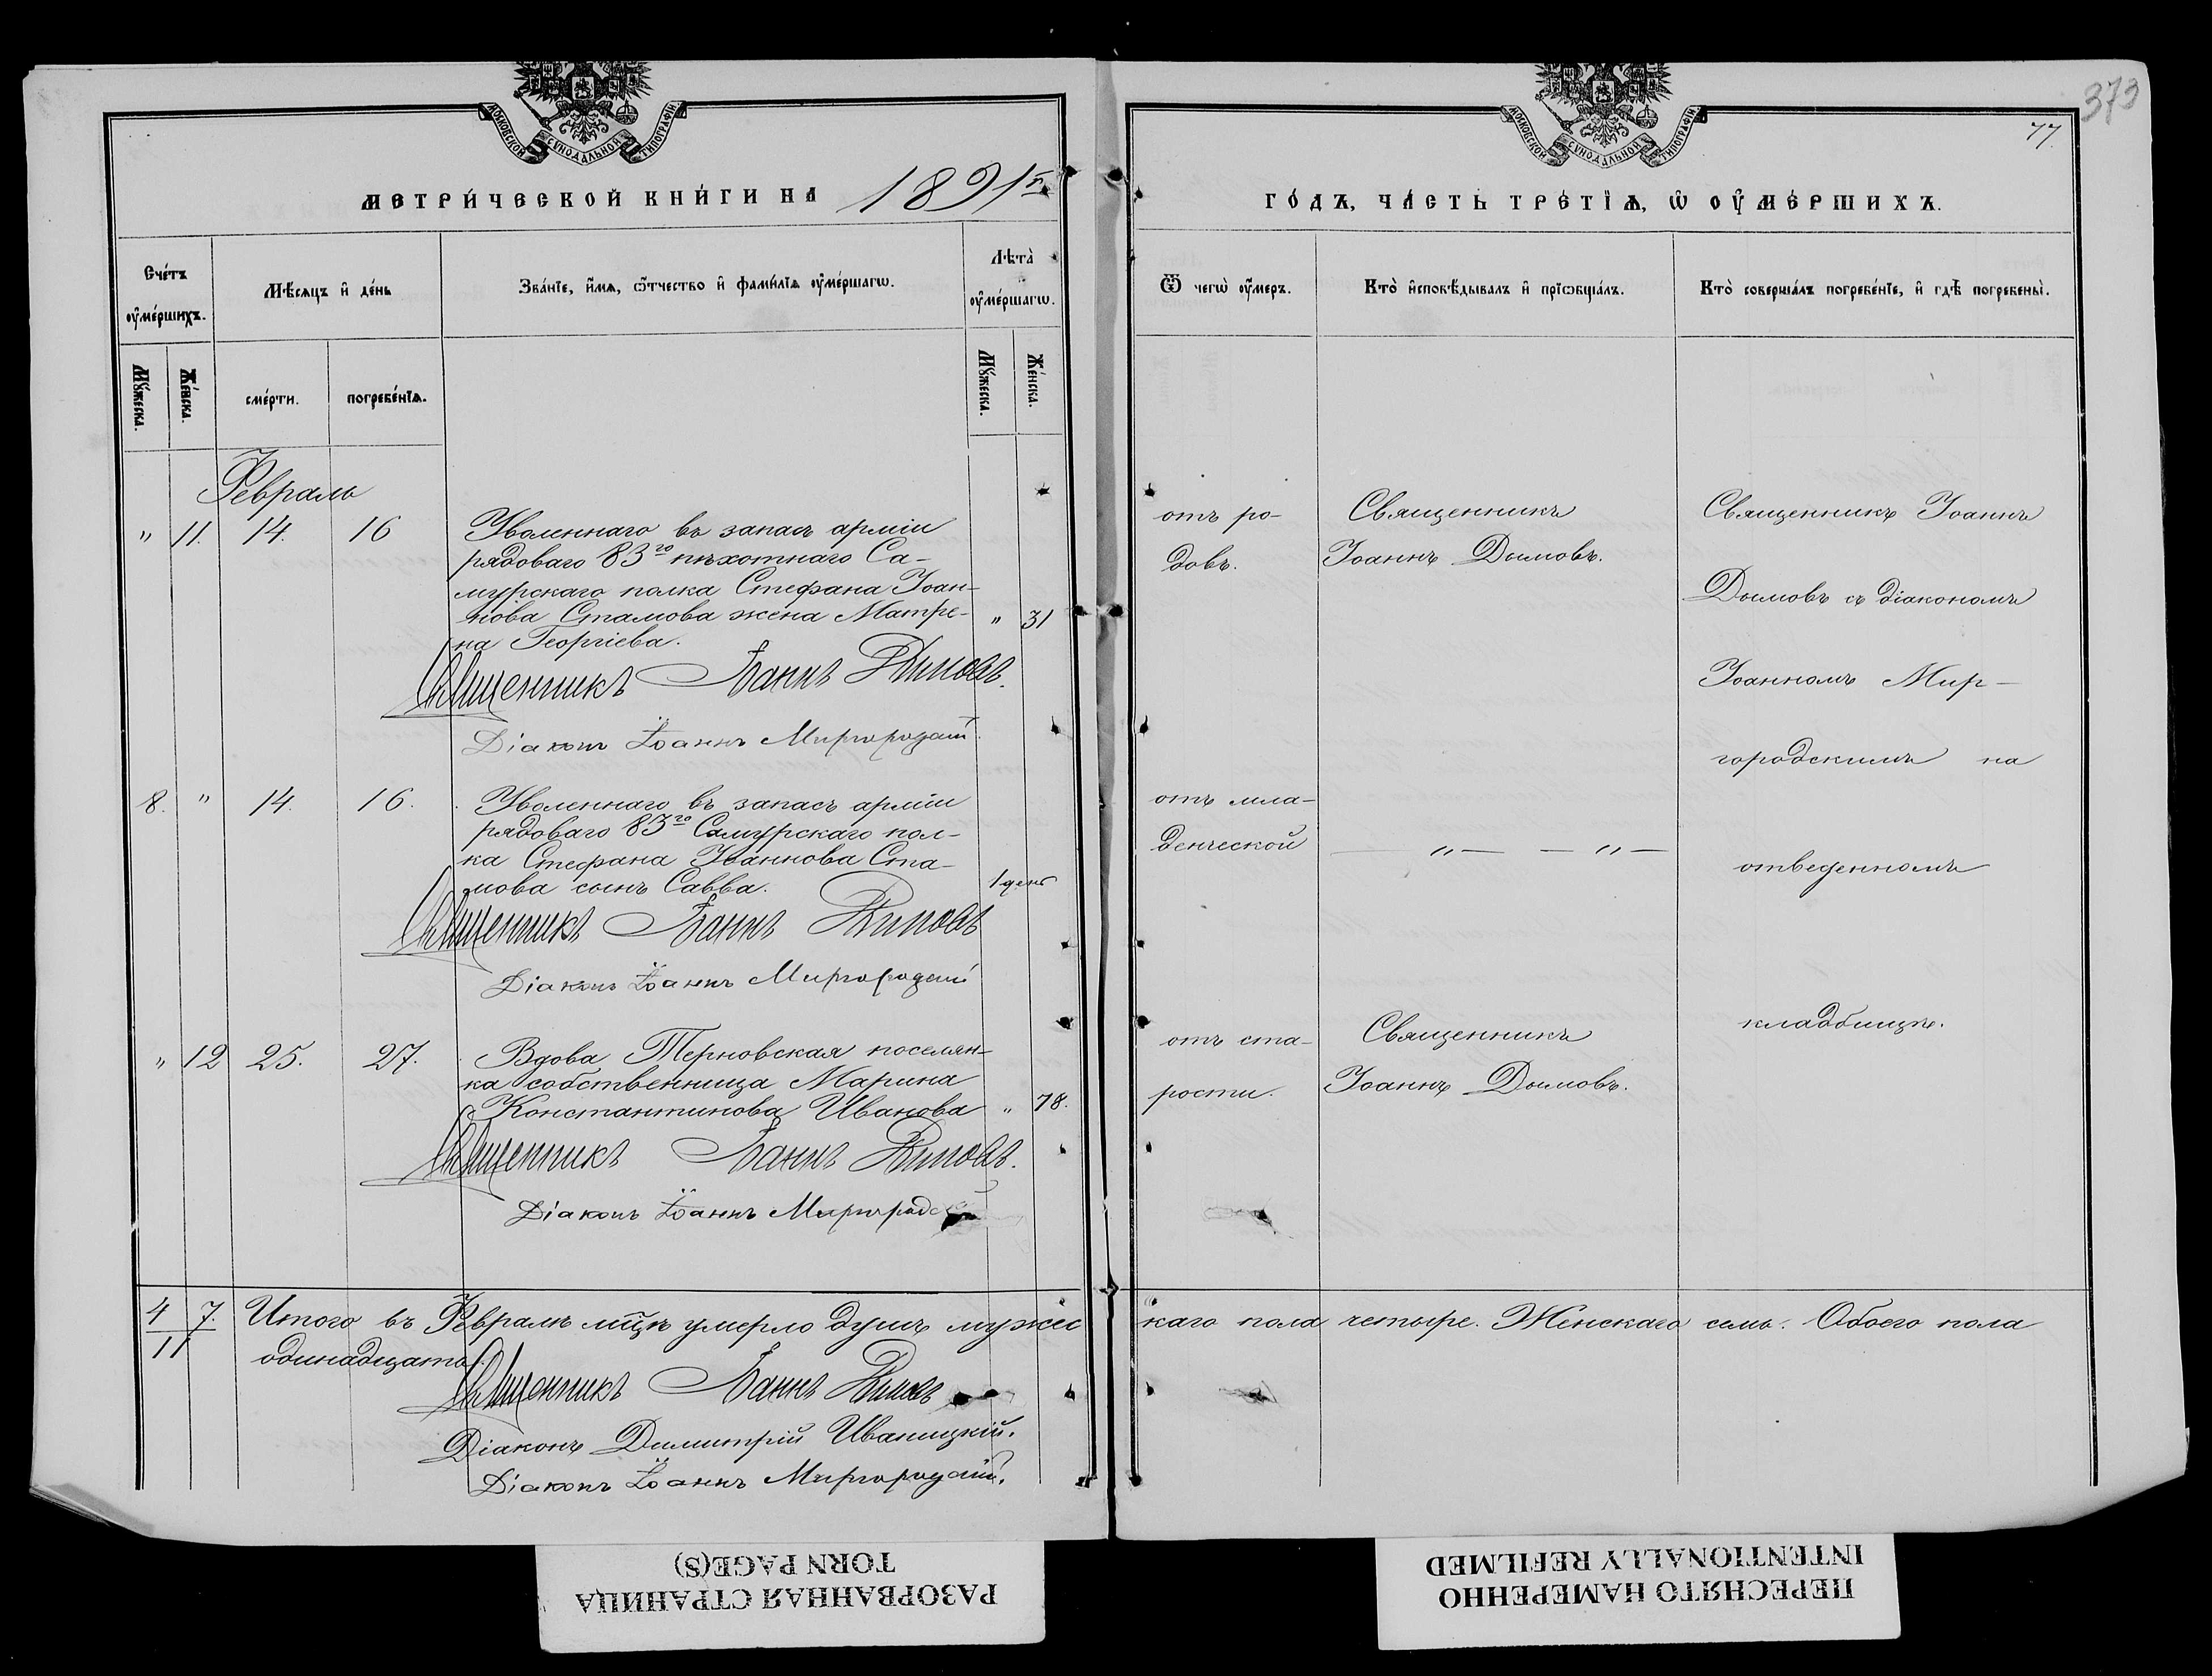 373
77.
МОСКОВСКОЙ СѴНОДАЛЬНОЙ ТИПОГРАФІИ
МОСКОВСКОЙ СѴНОДАЛЬНОЙ ТИПОГРАФІИ
МЕТРИ́ЧЕСКОЙ КНИ́ГИ НА 1891 г.
ГО́ДЪ, ЧА́СТЬ ТРЕ́ТІѦ, Ѡ ОУ҆МЕ́РШИХЪ.
Сче́тъ оу҆ме́ршихъ.
Мѣ́сяцъ и҆ де́нь
Зва́нїе, и҆́мѧ, ѻ҆́тчество и҆ фами́лїѧ оу҆ме́ршагѡ.
Лѣта̀ оу҆ме́ршагѡ.
Ѿ чегѡ̀ оу҆́меръ.
Кто̀ и҆сповѣ́дывалъ и҆ прїѡбща́лъ.
Кто̀ соверша́лъ погребе́нїе, и҆ гдѣ̀ погребены̀.
Мꙋ́жеска.
Же́нска.
сме́рти.
погребе́нїѧ.
Мꙋ́жеска.
Же́нска.
Февраль
" 11. 14. 16 Уволеннаго въ запасъ арміи
рядоваго 83го пѣхотнаго Са-
мурскаго полка Стефана Іоан-
нова Стамова жена Матре- " 31
на Георгіева.
Священникъ Іоаннъ Дымовъ.
Діаконъ Іоаннъ Миргородскій.
отъ ро-
довъ.
Священникъ
Іоаннъ Дымовъ.
Священникъ Іоаннъ
Дымовъ съ діакономъ
Іоанномъ Мир-
городскимъ на
отведенномъ
кладбищѣ.
8. " 14. 16. Уволеннаго въ запасъ арміи
рядоваго 83го Самурскаго пол-
ка Стефана Іоаннова Ста-
мова сынъ Савва. 1 день
Священникъ Іоаннъ Дымовъ
Діаконъ Іоаннъ Миргородскій
отъ мла-
денческой — " — — " —
" 12 25. 27. Вдова Терновская поселян-
ка собственница Марина
Константинова Иванова " 78.
Священникъ Іоаннъ Дымовъ.
Діаконъ Іоаннъ Миргородскій
отъ ста-
рости.
Священникъ
Іоаннъ Дымовъ.
4 7. Итого въ Февралѣ мцѣ умерло душъ мужес каго пола четыре. Женскаго семь. Обоего пола
11 одинадцать.
Священникъ Іоаннъ Дымовъ
Діаконъ Димитрій Иваницкій.
Діаконъ Іоаннъ Миргородскій.
РАЗОРВАННАЯ СТРАНИЦА
TORN PAGE(S)
ПЕРЕСНЯТО НАМЕРЕННО
INTENTIONALLY REFILMED